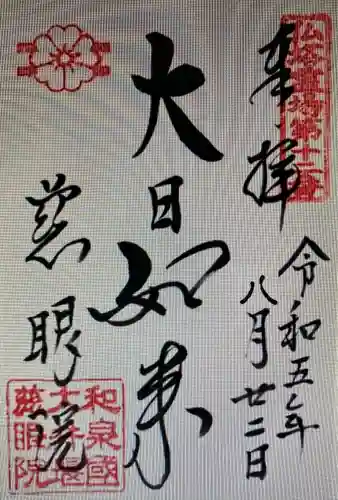 奉拝
仏塔霊場第十二番
令和五年
八月廿二日
大日如来
慈眼院
和泉國
大井堰
慈眼院